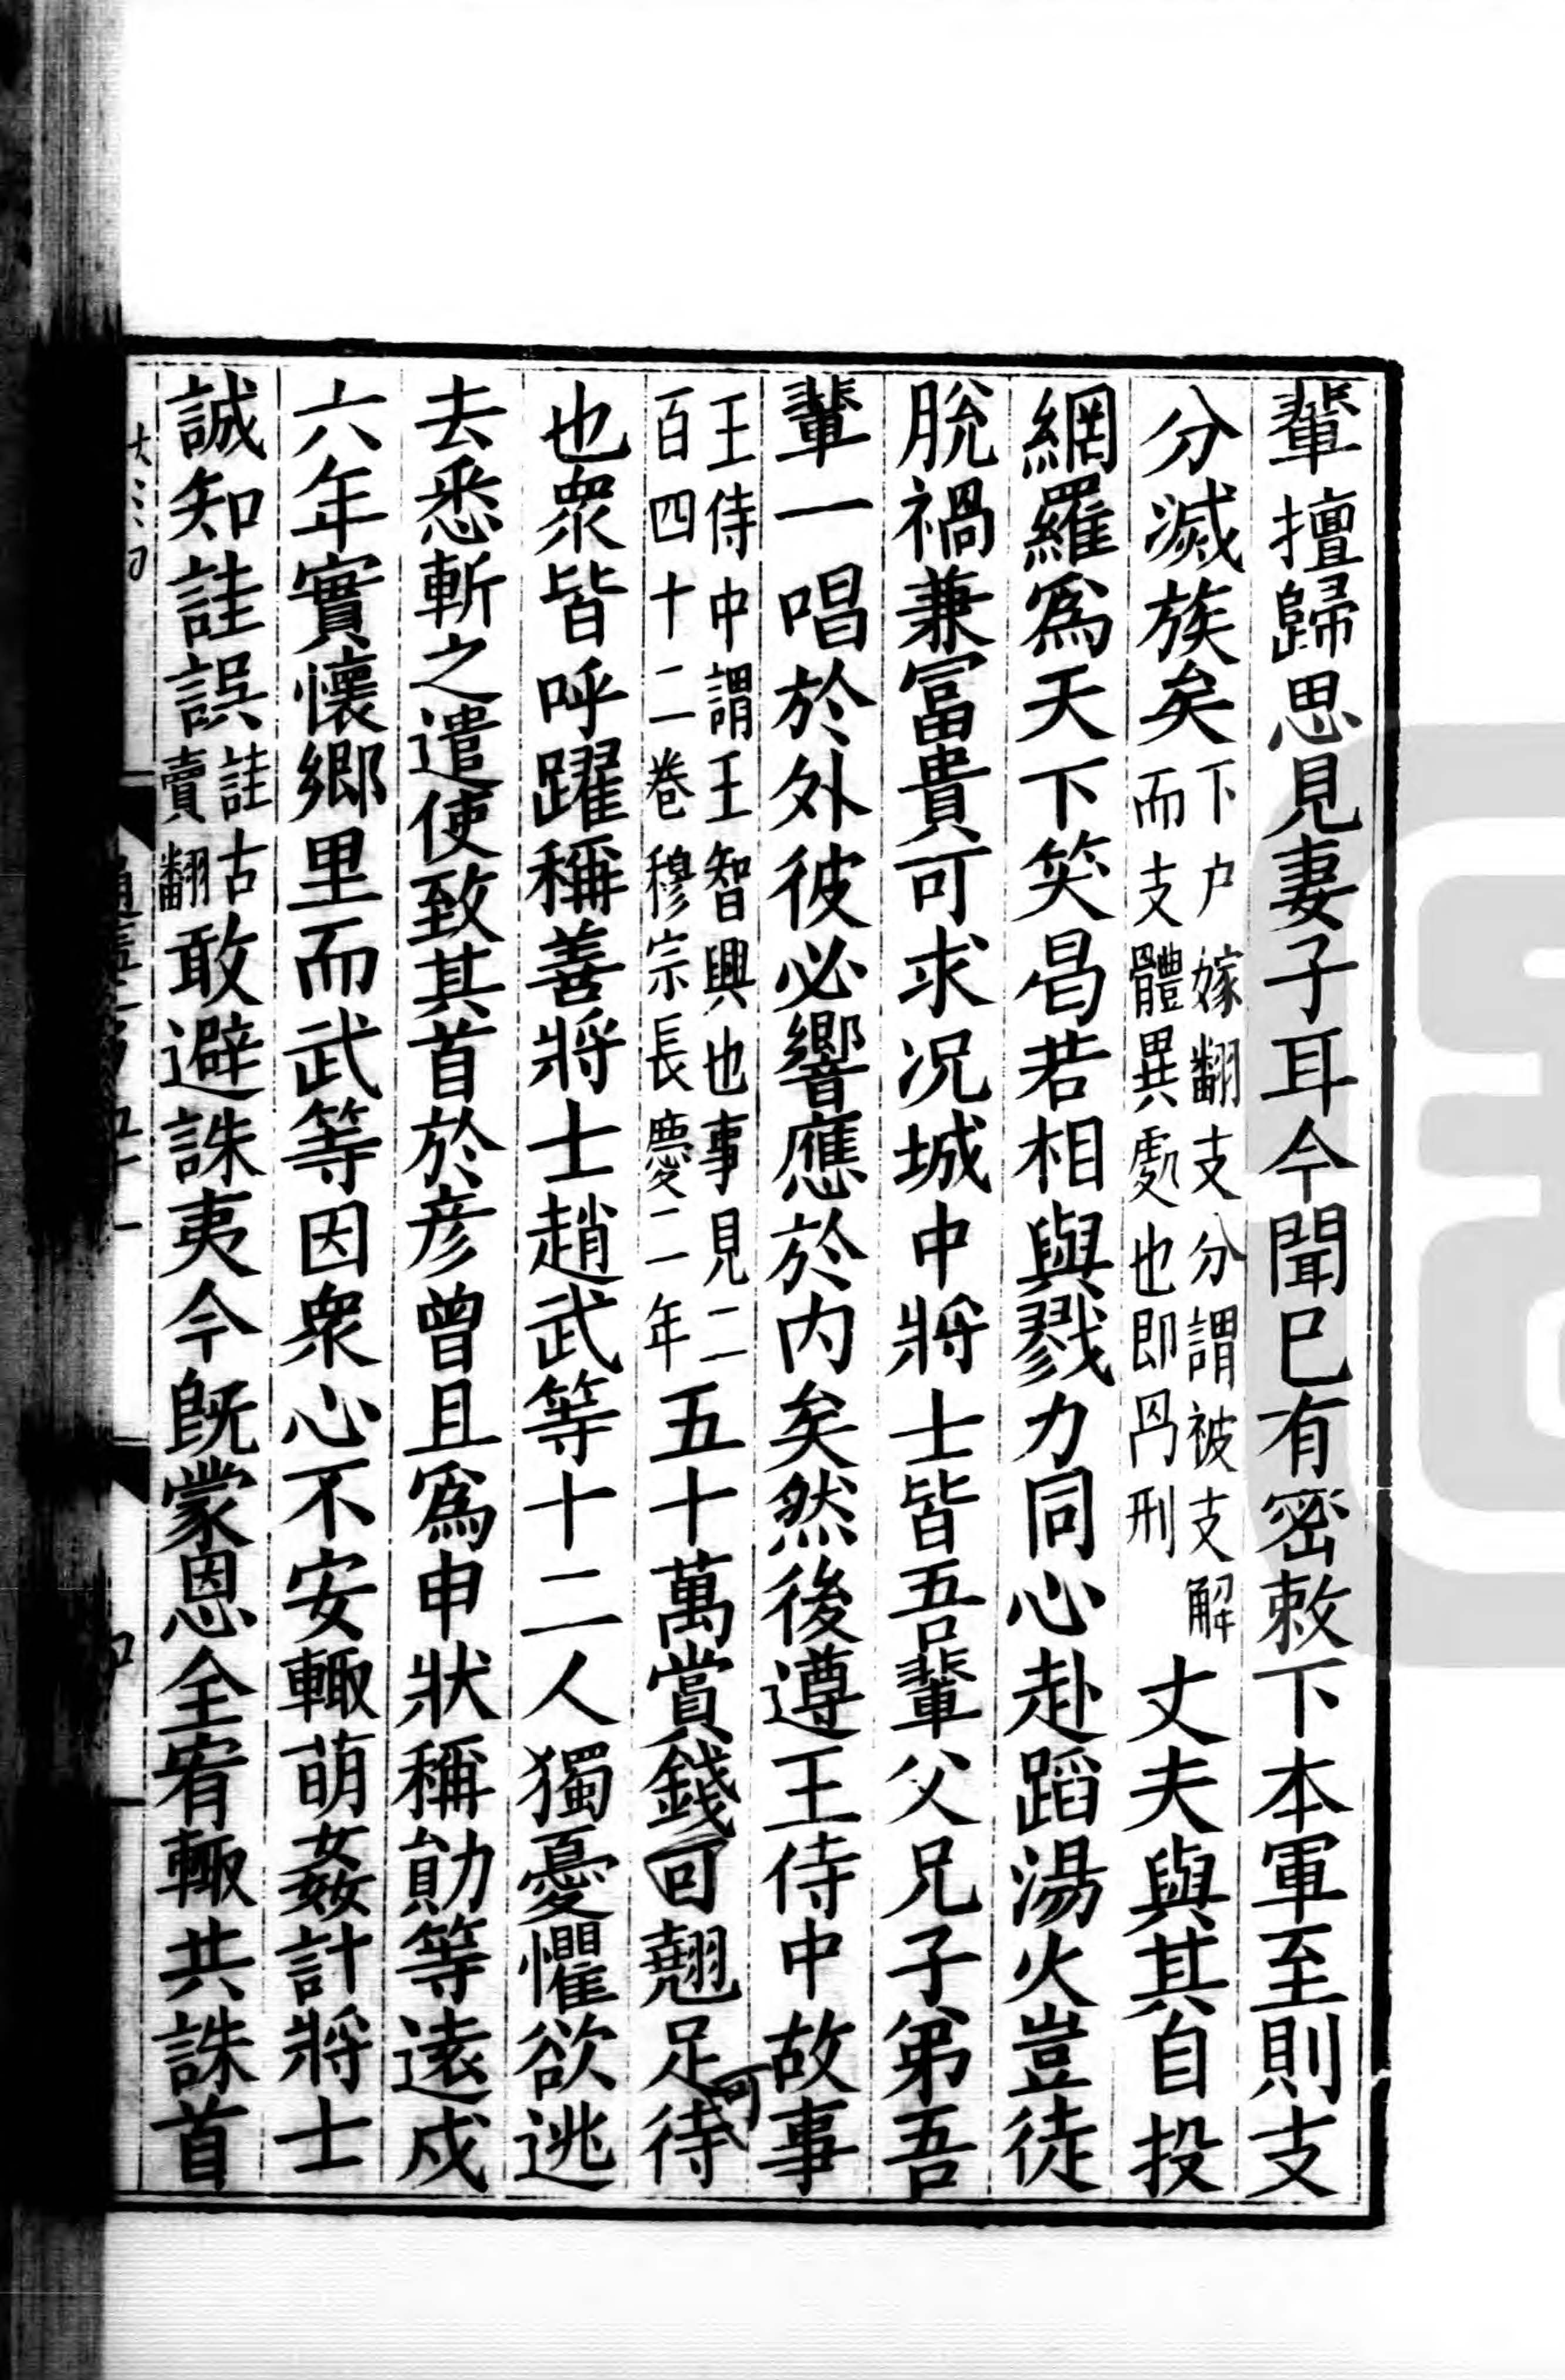 輩擅歸思見妻子耳今聞巳有密敕下本軍至則支
分滅族矣下户嫁翻支分謂被支解而支體異處也即冎刑丈夫與其自投
網羅爲天下笑曷若相與戮力同心赴蹈湯火豈徒
脫禍兼富貴可求况城中將士皆吾輩父兄子弟吾
輩一唱於外彼必響應於内矣然後遵王侍中故事
王侍中謂王智興也事見二百四十二卷穆宗長慶二年五十萬賞錢可翹足待
也衆皆呼躍稱善將士趙武等十二人獨憂懼欲逃
去悉斬之遣使致其首於彦曾且爲申狀稱勛等遠戍
六年實懷鄉里而武等因衆心不安輙萌姦計將士
誠知詿誤詿古賣翻敢避誅夷今旣蒙恩全宥輙共誅首